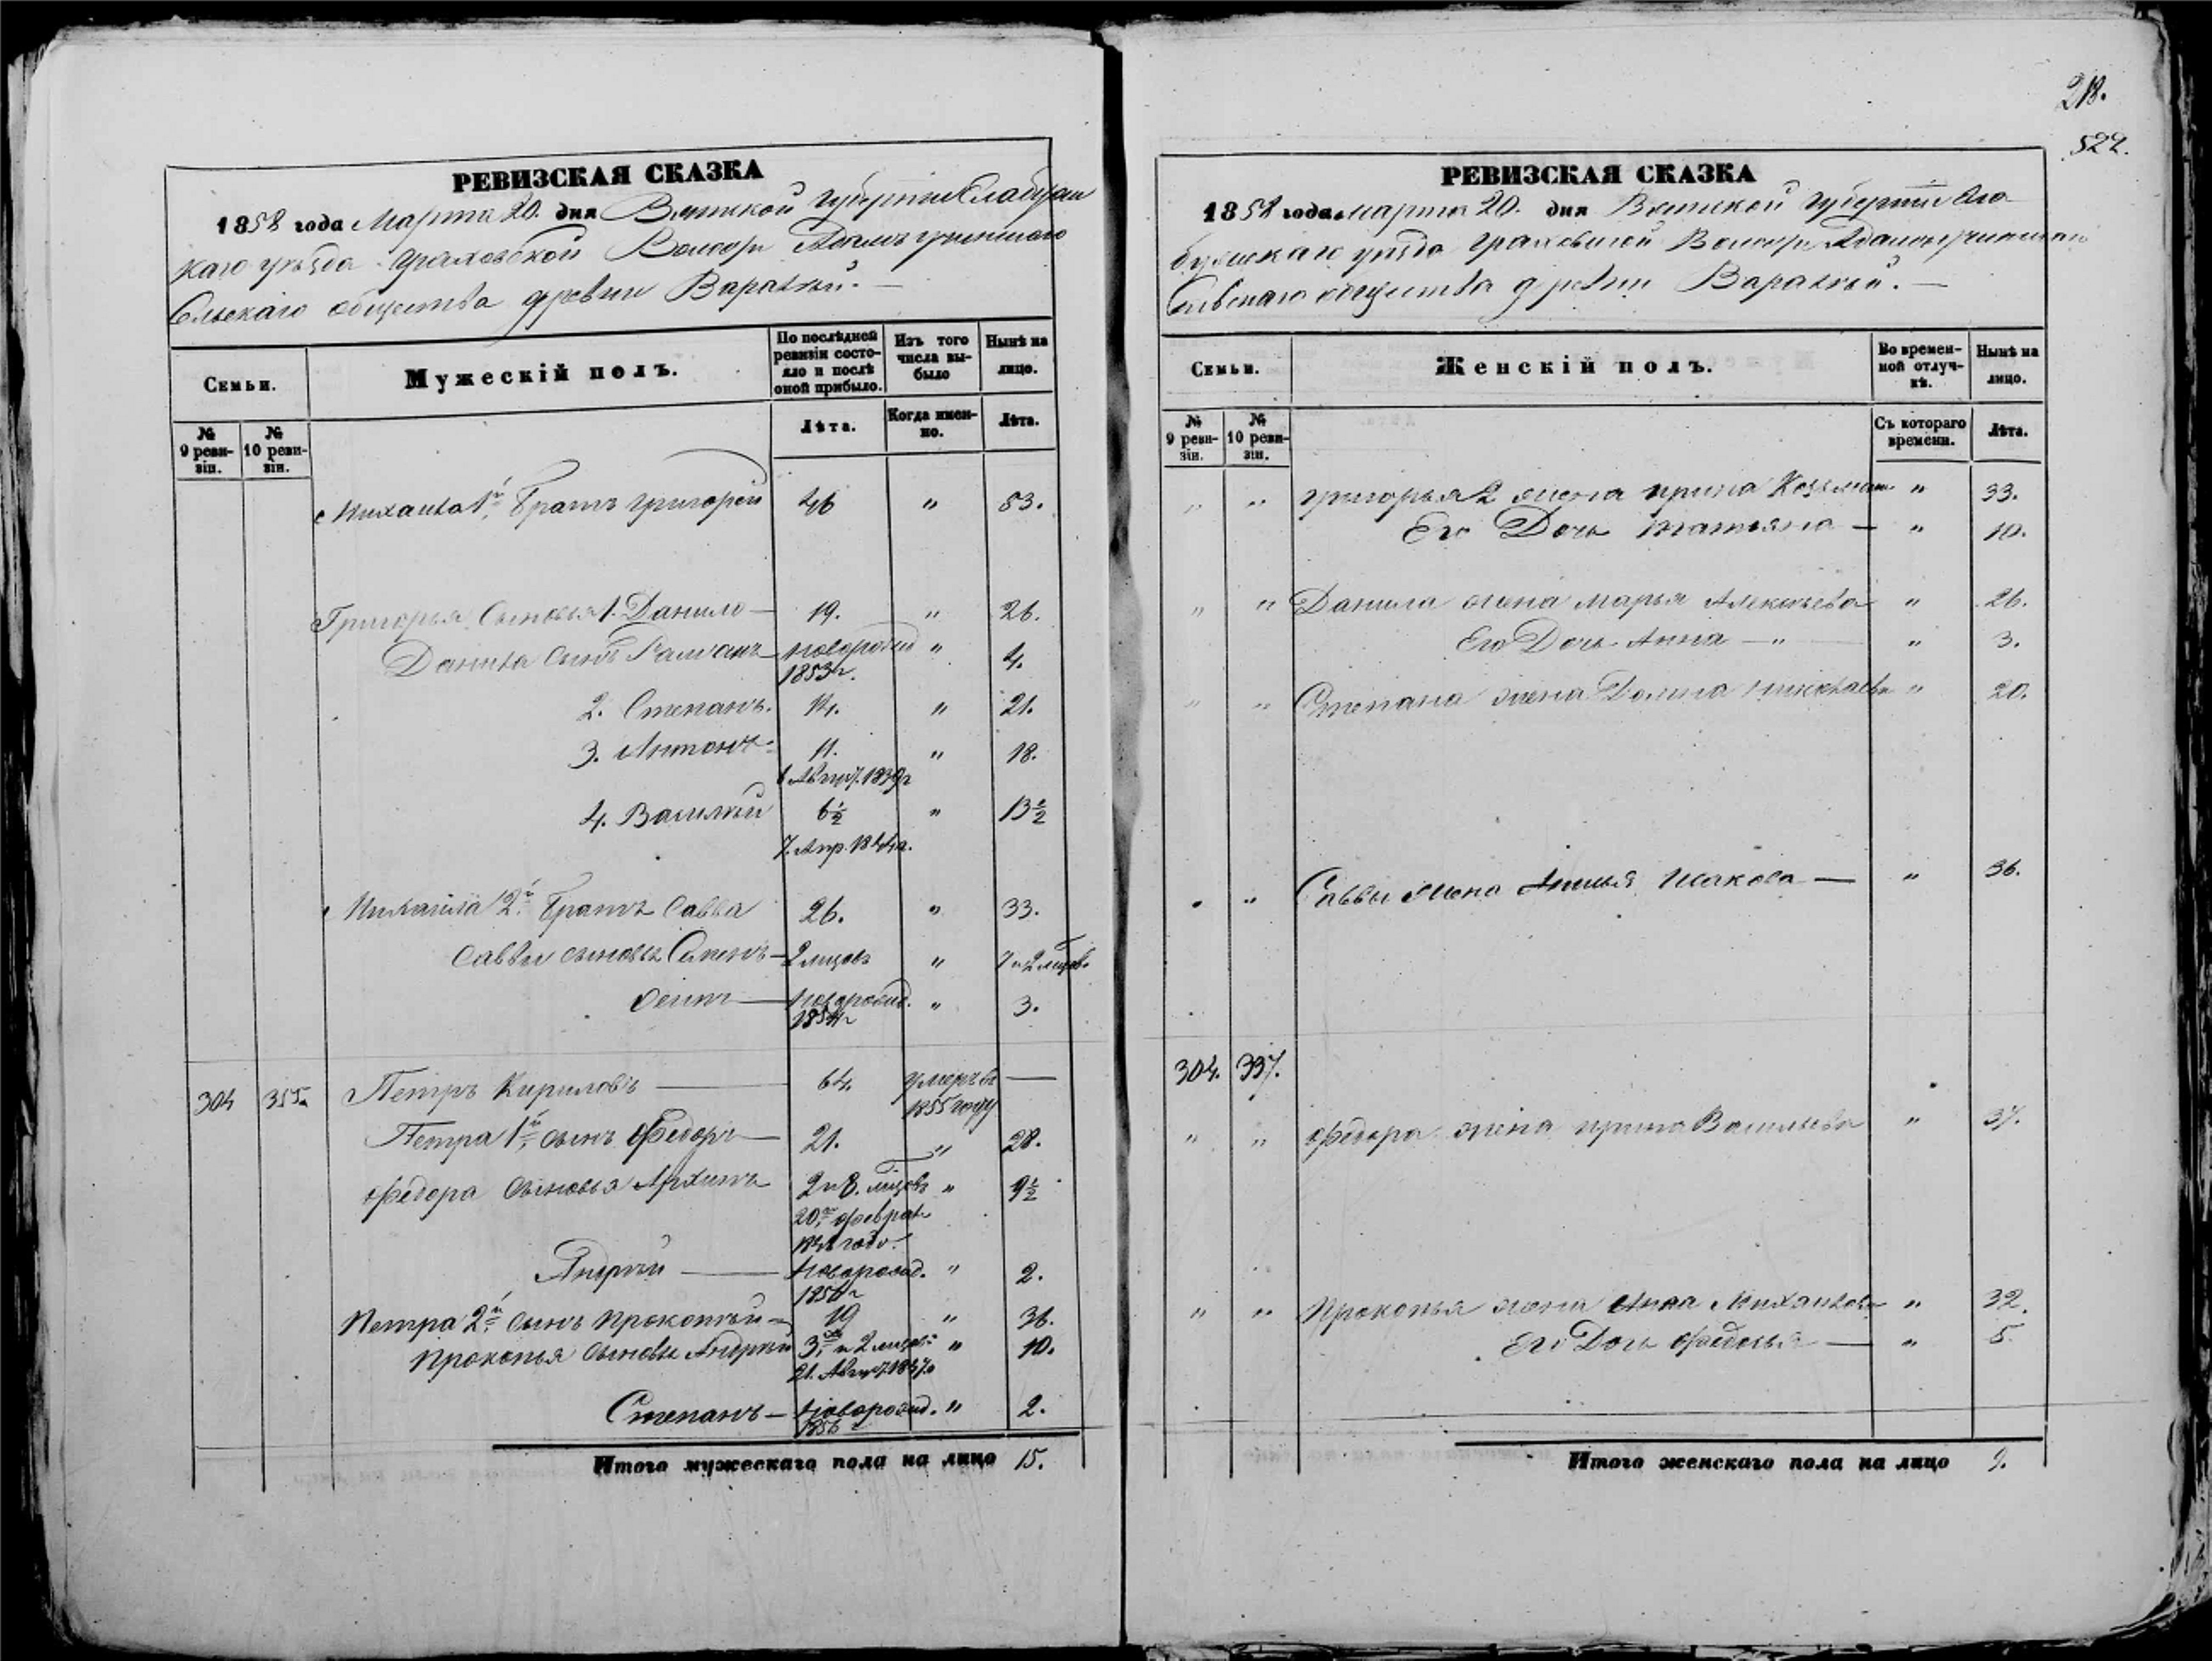 218.
522.
РЕВИЗСКАЯ СКАЗКА
1858 года Марта 20. дня Вятской губерніи Елабужс
каго уѣзда Граховской Волости
Сельскаго общества деревни Варалей. —
Семьи.
Мужескій полъ.
По послѣдней ревизіи состояло и послѣ оной прибыло.
Изъ того числа выбыло
Нынѣ на лицо.
№ 9 ревизіи.
№ 10 ревизіи.
Лѣта.
Когда именно.
Лѣта.
Михаила 1й Братъ Григорій 46 " 53.
Григорья Сыновья 1. Данило — 19. " 26.
Данила Сынъ новорожд " 4.
1853 г.
2. Степанъ. 14. " 21.
3. Антонъ 11. " 18.
4. Василей 6½ " 13½
7. Апр. 1844 г.
Михаила 2й Братъ Савва 26. " 33.
Саввы сыновья Семенъ — 2 мцовъ " 7 и 2 мцовъ
Осипъ — новорожд. " 3.
1854 г
304 355 Петръ Кириловъ — 64. умеръ въ —
1855 году
Петра 1й сынъ Федоръ — 21. " 28.
Федора Сыновья Архипъ 2 и 8. мцовъ " 9½
20. Феврал
Андрей — новорожд. " 2.
1856 г
Петра 2й сынъ Прокопей — 19 " 36.
Прокопья сыновья Андрей 3 и 2 мцов " 10.
21. Август. 1847 г
Степанъ — новорожд. " 2.
1856 г
Итого мужескаго пола на лицо 15.
РЕВИЗСКАЯ СКАЗКА
1858 года Марта 20. дня Вятской губерніи Ела
бужскаго уѣзда Граховской Волости
Сельскаго общества деревни Варалей. —
Семьи.
Женскій полъ.
Во временной отлучкѣ.
Нынѣ на лицо.
№ 9 ревизіи.
№ 10 ревизіи.
Съ котораго времени.
Лѣта.
" " Григорья 2 жена Ирина Козьмин " 33.
Его Дочь Татьяна — " 10.
" " Данила жена Марья Алексѣева " 26.
Его Дочь Анна — " — " 3.
" " Степана жена " 20.
" " Саввы жена Исакова — " 36.
304. 337.
" " Федора жена Ирина Васильева " 37.
" " Прокопья жена Анна Михаилова " 32.
Его Дочь Федосья — " 5.
Итого женскаго пола на лицо 9.